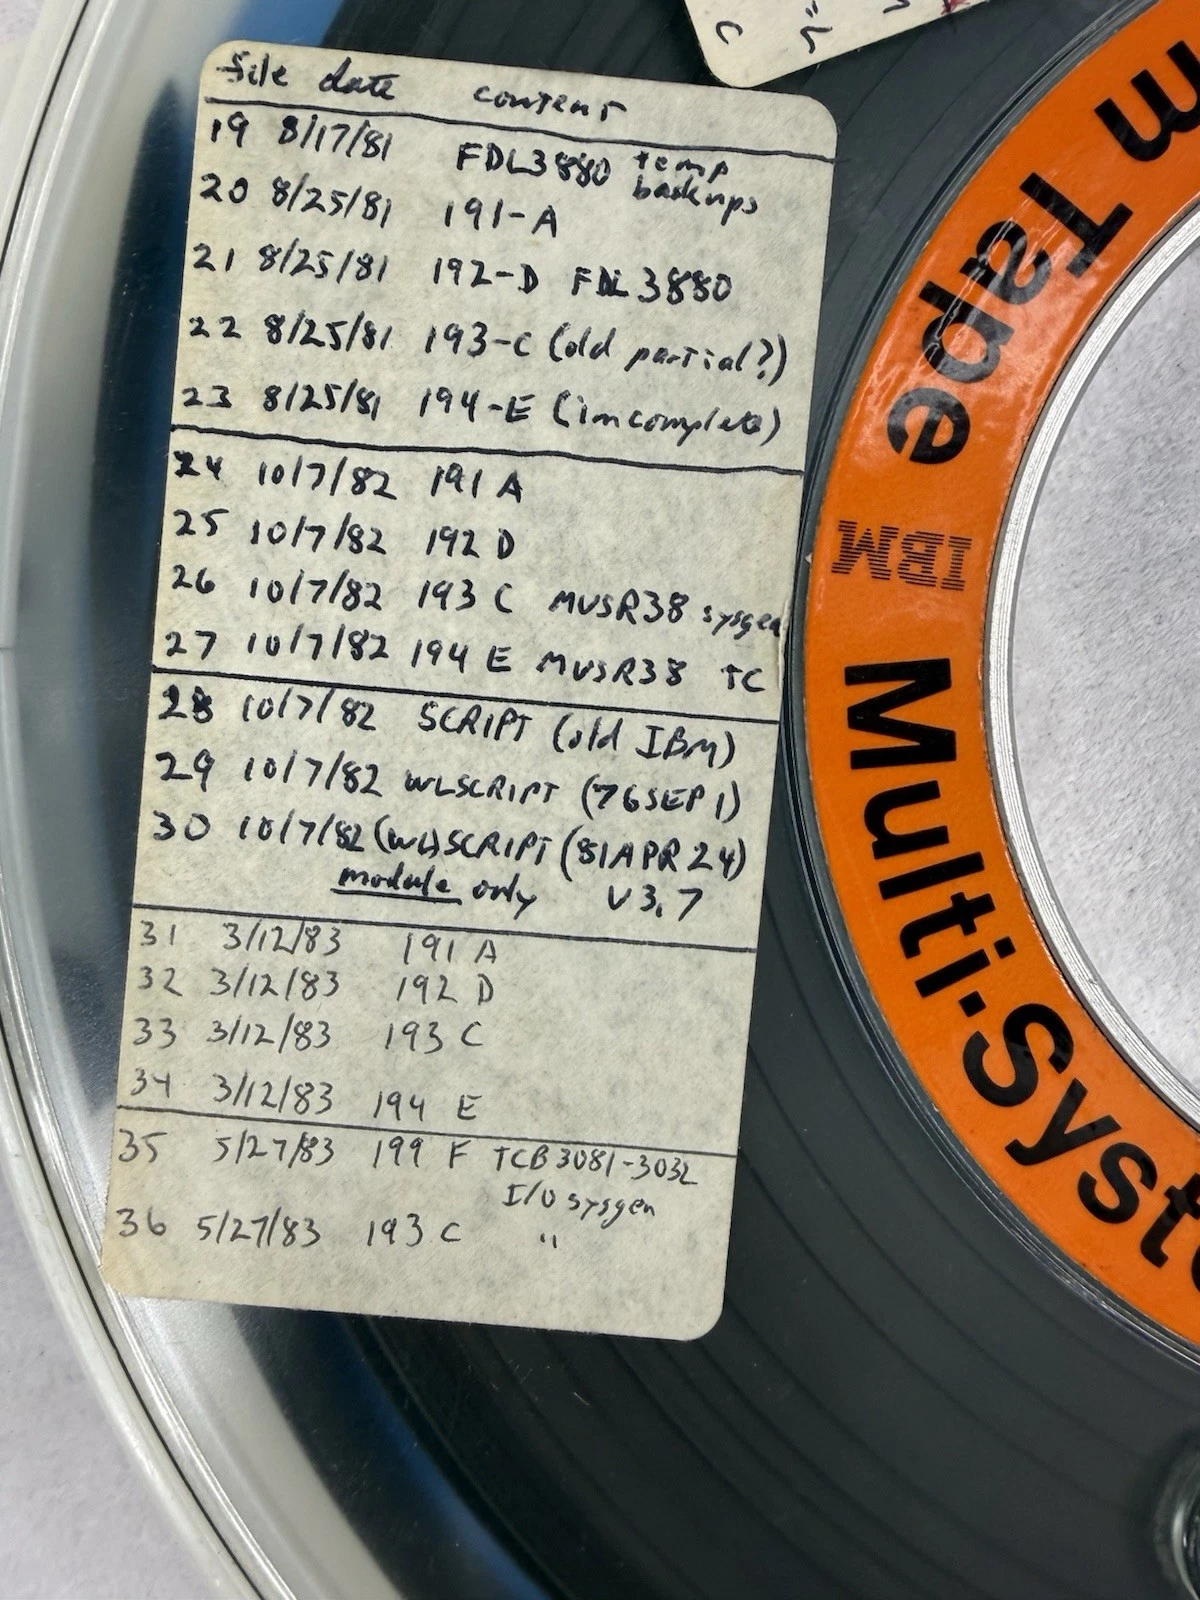 file date content
19 8/17/81 FDL3880 temp backups
20 8/25/81 191-A
21 8/25/81 192-D FDL3880
22 8/25/81 193-C (old partial?)
23 8/25/81 194-E (imcomplete)
24 10/7/82 191 A
25 10/7/82 192 D
26 10/7/82 193 C MVSR38 sysgen
27 10/7/82 194 E MVSR38 TC
28 10/7/82 SCRIPT (old IBM)
29 10/7/82 WLSCRIPT (76SEP1)
30 10/7/82 (WL)SCRIPT (81APR24)
module only V3.7
31 3/12/83 191 A
32 3/12/83 192 D
33 3/12/83 193 C
34 3/12/83 194 E
35 5/27/83 199 F TCB3081-3032
I/O sysgen
36 5/27/83 193 C "
m Tape IBM Multi-Syste